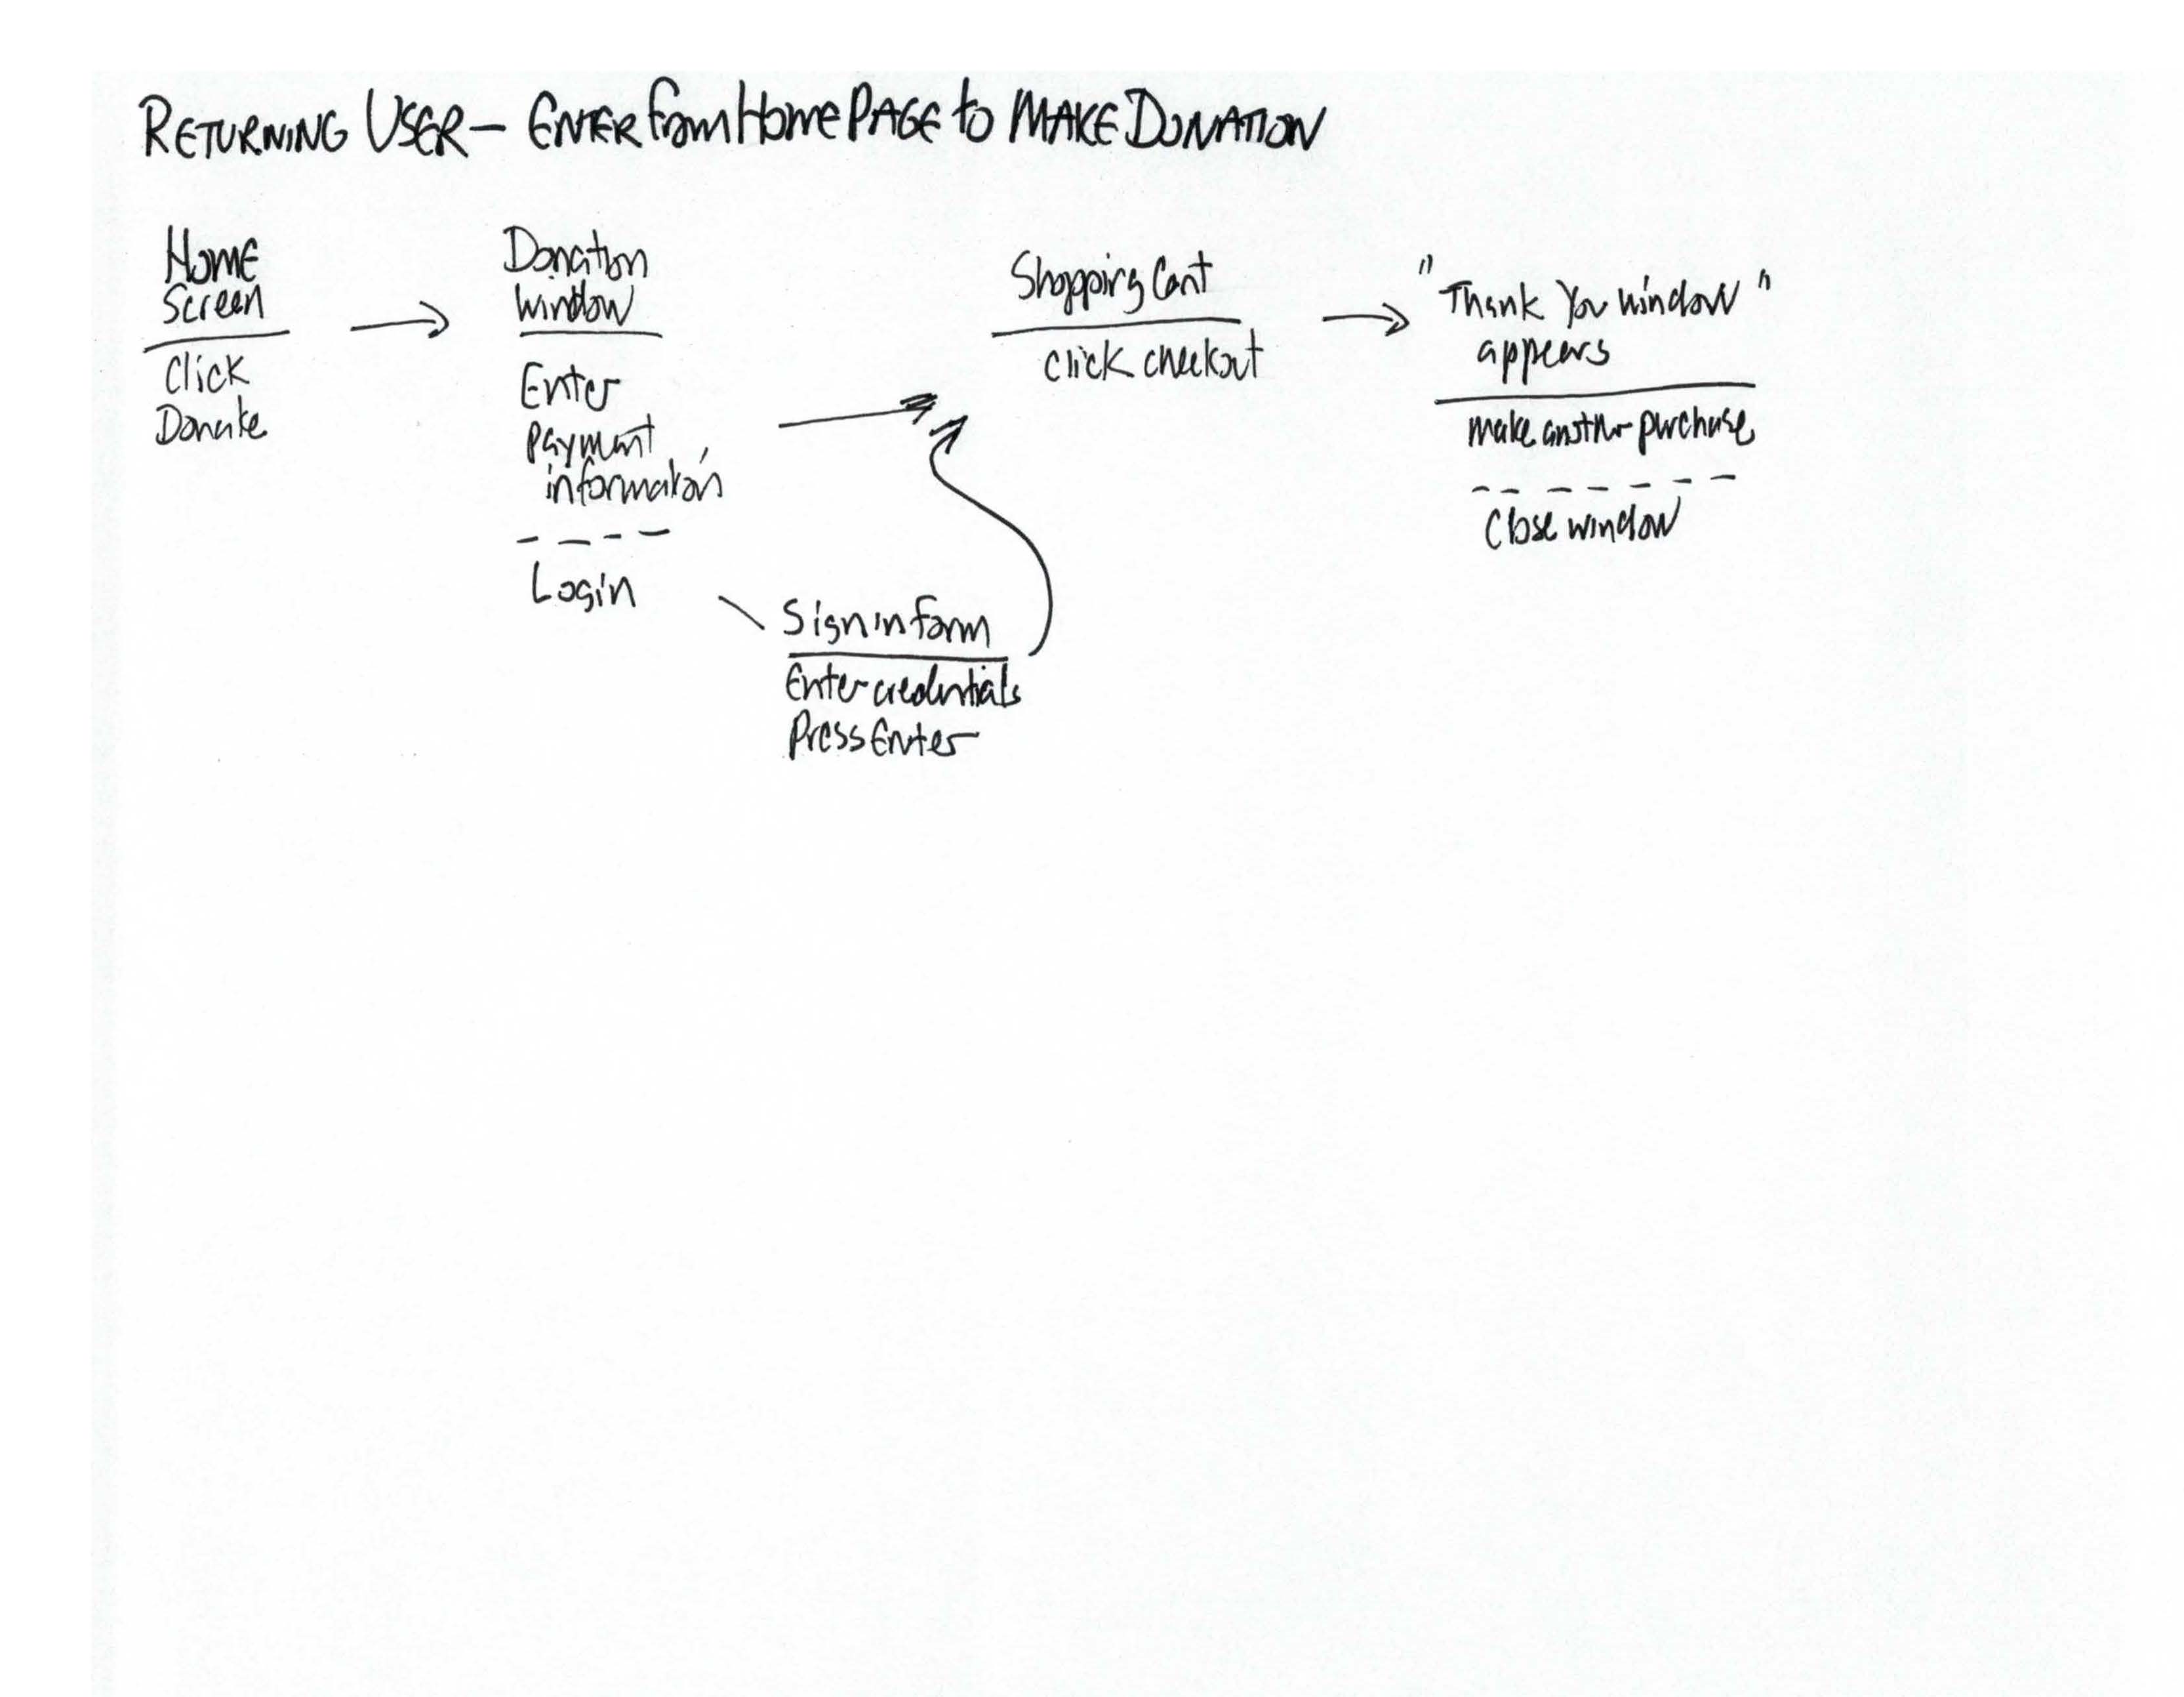 RETURNING USER — ENTER from Home PAGE to MAKE DONATION
Home
Screen
Click
Donate
Donation
Window
Enter
Payment
information
Login
Sign in form
Enter credentials
Press Enter
Shopping Cart
Click checkout
"Thank You window"
appears
make another purchase
Close window